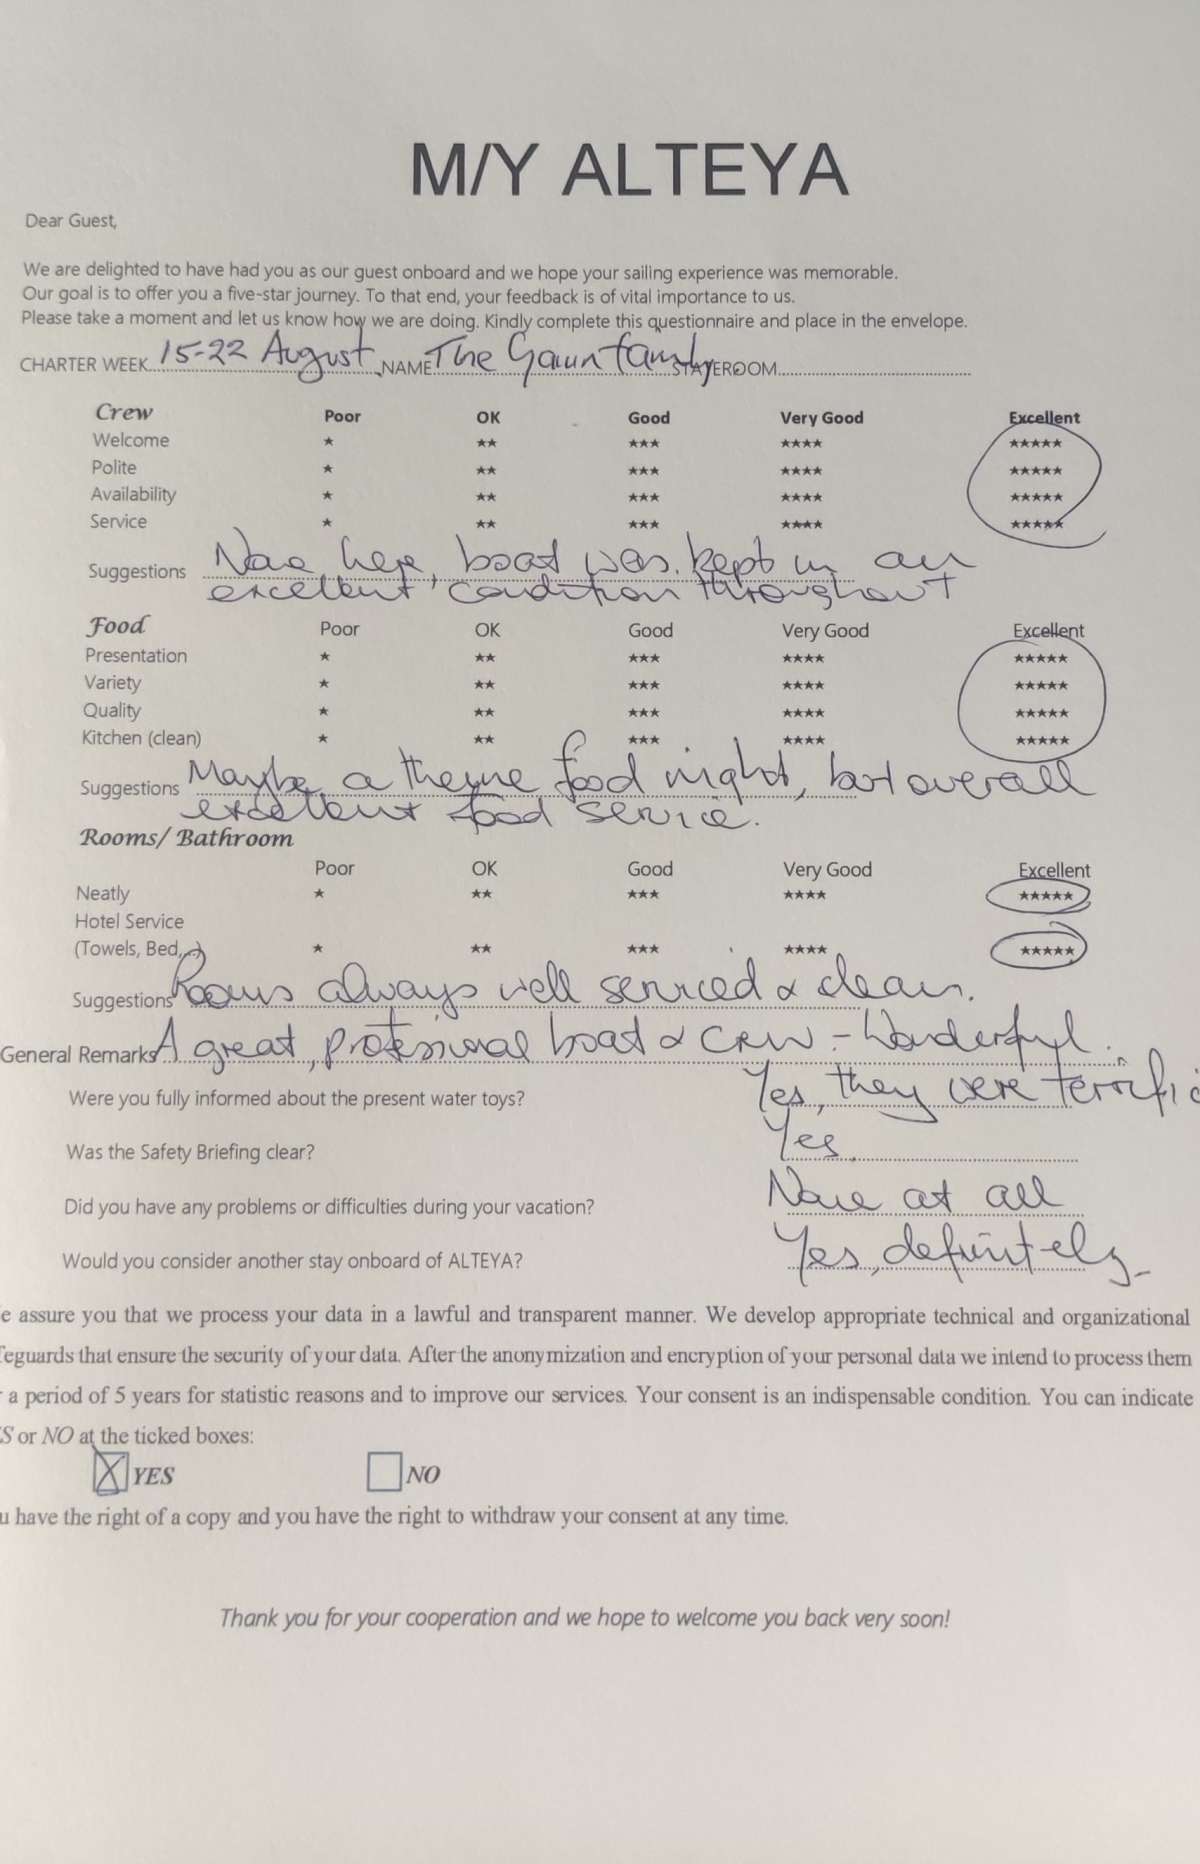 M/Y ALTEYA
Dear Guest,
We are delighted to have had you as our guest onboard and we hope your sailing experience was memorable.
Our goal is to offer you a five-star journey. To that end, your feedback is of vital importance to us.
Please take a moment and let us know how we are doing. Kindly complete this questionnaire and place in the envelope.
CHARTER WEEK 15-22 August NAME The family STATEROOM
Crew Poor OK Good Very Good Excellent
Welcome ★ ★★ ★★★ ★★★★ ★★★★★
Polite ★ ★★ ★★★ ★★★★ ★★★★★
Availability ★ ★★ ★★★ ★★★★ ★★★★★
Service ★ ★★ ★★★ ★★★★ ★★★★★
Suggestions None here, boat was kept in an
excellent condition throughout
Food Poor OK Good Very Good Excellent
Presentation ★ ★★ ★★★ ★★★★ ★★★★★
Variety ★ ★★ ★★★ ★★★★ ★★★★★
Quality ★ ★★ ★★★ ★★★★ ★★★★★
Kitchen (clean) ★ ★★ ★★★ ★★★★ ★★★★★
Suggestions Maybe a theme food night, but overall
excellent food service.
Rooms/ Bathroom
Poor OK Good Very Good Excellent
Neatly ★ ★★ ★★★ ★★★★ ★★★★★
Hotel Service
(Towels, Bed,..) ★ ★★ ★★★ ★★★★ ★★★★★
Suggestions Rooms always well serviced & clean.
General Remarks A great, profesional boat & crew - Wonderful.
Were you fully informed about the present water toys? Yes, they were terrific
Was the Safety Briefing clear? Yes.
Did you have any problems or difficulties during your vacation? None at all
Would you consider another stay onboard of ALTEYA? Yes, definitely
e assure you that we process your data in a lawful and transparent manner. We develop appropriate technical and organizational
feguards that ensure the security of your data. After the anonymization and encryption of your personal data we intend to process them
r a period of 5 years for statistic reasons and to improve our services. Your consent is an indispensable condition. You can indicate
ES or NO at the ticked boxes:
YES NO
u have the right of a copy and you have the right to withdraw your consent at any time.
Thank you for your cooperation and we hope to welcome you back very soon!